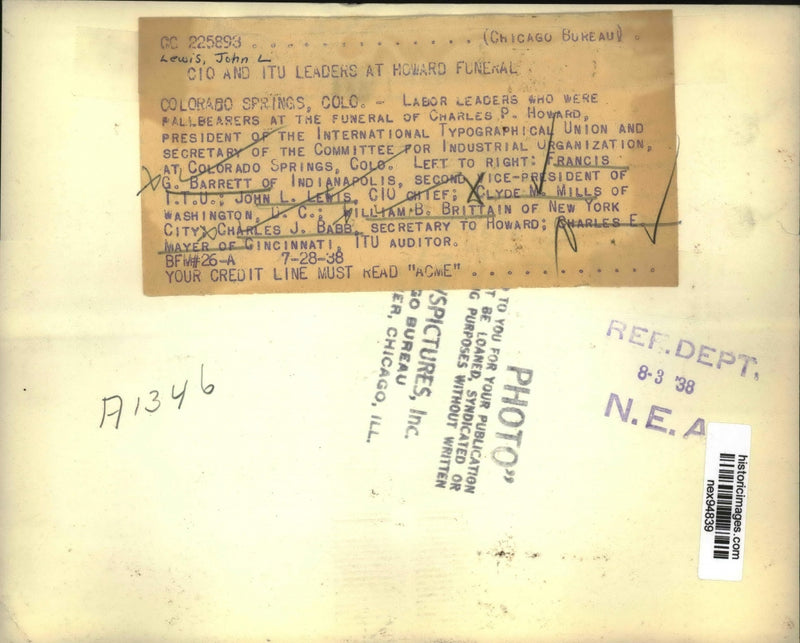 GC 225893 . . . . . . . . . . . . . (CHICAGO BUREAU) .
Lewis, John L
CIO AND ITU LEADERS AT HOWARD FUNERAL
COLORADO SPRINGS, COLO. - LABOR LEADERS WHO WERE
PALLBEARERS AT THE FUNERAL OF CHARLES P. HOWARD,
PRESIDENT OF THE INTERNATIONAL TYPOGRAPHICAL UNION AND
SECRETARY OF THE COMMITTEE FOR INDUSTRIAL ORGANIZATION,
AT COLORADO SPRINGS, COLO. LEFT TO RIGHT: FRANCIS
G. BARRETT OF INDIANAPOLIS, SECOND VICE-PRESIDENT OF
I.T.U.; JOHN L. LEWIS, CIO CHIEF; CLYDE M. MILLS OF
WASHINGTON, D. C.; WILLIAM B. BRITTAIN OF NEW YORK
CITY; CHARLES J. BABB, SECRETARY TO HOWARD; CHARLES E.
MAYER OF CINCINNATI, ITU AUDITOR.
BFM#26-A 7-28-38
YOUR CREDIT LINE MUST READ "ACME" . . . . . . . . . . .
PHOTO"
TO YOU FOR YOUR PUBLICATION
T BE LOANED, SYNDICATED OR
G PURPOSES WITHOUT WRITTEN
SPICTURES, Inc.
GO BUREAU
ER, CHICAGO, ILL.
REF. DEPT.
8-3 '38
N. E. A
A1346
historicimages.com
nex94839